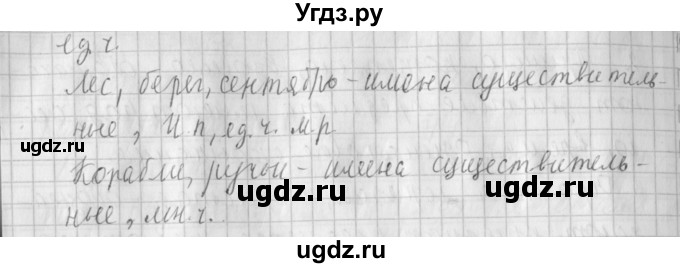 Угдз.ру
ед. ч.
Лес, берег, сентябрь - имена существитель-
ные, И.п, ед. ч. м.р
Корабли, ручьи - имена существитель-
ные, мн.ч.
ugdz.ru
ugdz.ru
ugdz.ru
ugdz.ru
ugdz.ru
ugdz.ru